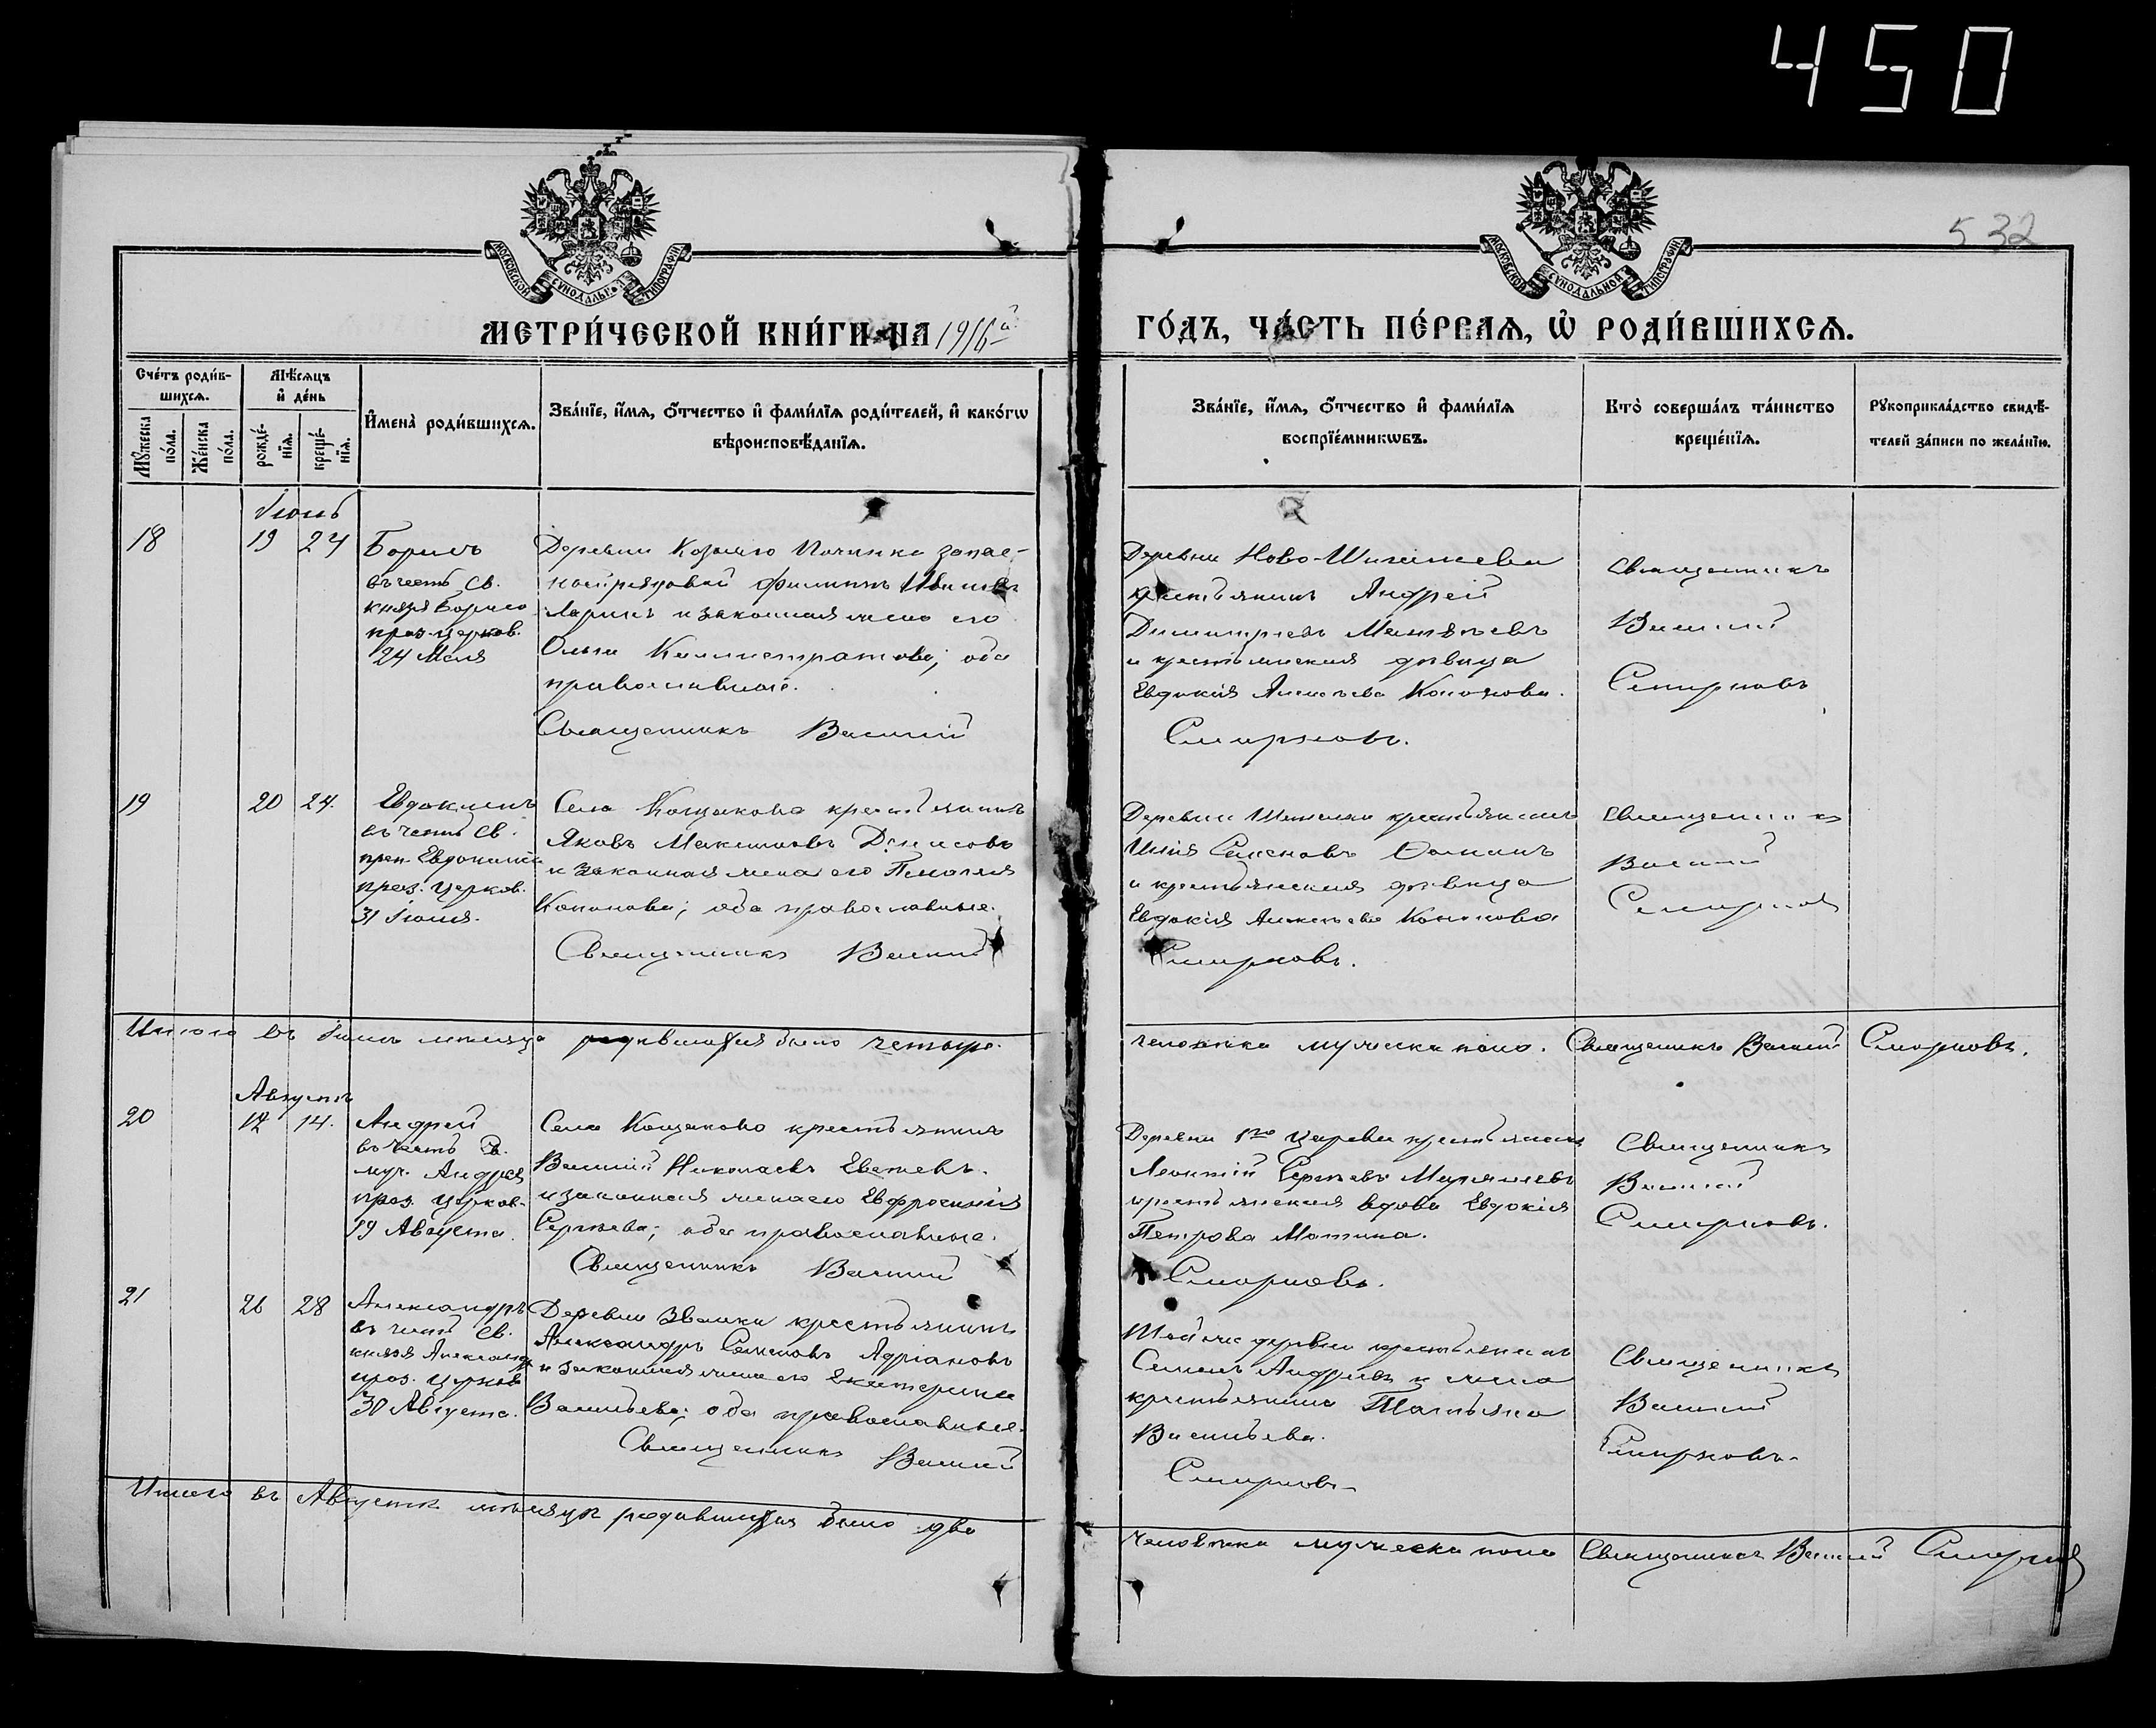 450
532
МОСКОВСКОЙ СѴНОДАЛЬНОЙ ТИПОГРАФІИ
МОСКОВСКОЙ СѴНОДАЛЬНОЙ ТИПОГРАФІИ
МЕТРИ́ЧЕСКОЙ КНИ́ГИ НА 1916й
ГО́ДЪ, ЧА́СТЬ ПЕ́РВАѦ, Ѡ҆ РОДИ́ВШИХСѦ.
Сче́тъ роди́в-
шихсѧ.
Мѣ́сяцъ
и҆ де́нь
Мꙋ́жеска по́ла.
Же́нска по́ла.
рожде́-
нїѧ.
креще́-
нїѧ.
И҆мена̀ роди́вшихсѧ.
Зва́нїе, и҆́мѧ, ѻ҆́тчество и҆ фами́лїѧ роди́телей, и҆ како́гѡ
вѣроисповѣ́данїѧ.
Зва́нїе, и҆́мѧ, ѻ҆́тчество и҆ фами́лїѧ
воспрїе́мникѡвъ.
Кто̀ соверша́лъ та́инство
креще́нїѧ.
Рꙋкоприкла́дство свидѣ́-
телей за́писи по жела́нїю.
Іюль
18 19 24
Борисъ
въ честь св.
князя Бориса
праз. церков.
24 Іюля
Деревни Козьяго Починка запас-
ной рядовой Филиппъ Ивановъ
Ларинъ и законная жена его
Ольга Каллистратова; оба
православные.
Священникъ Василій
Деревни Ново-Шигалеева
крестьянинъ Андрей
Димитріевъ Матвѣевъ
и крестьянская дѣвица
Евдокія Алексѣева Кононова.
Смирновъ.
Священникъ
Василій
Смирновъ
19 20 24.
Евдокимъ
въ честь св.
прав. Евдокима
праз. церков.
31 Іюля.
Села Кощаково крестьянинъ
Яковъ Максимовъ Денисовъ
и законная жена его Пелагія
Кононова; оба православные.
Священникъ Василій
Деревни крестьянинъ
Илія Семеновъ
и крестьянская дѣвица
Евдокія Алексѣева Кононова
Смирновъ.
Священникъ
Василій
Смирновъ
Итого въ Іюлѣ мѣсяцѣ родившихся было четыре
человѣка мужеска пола. Священникъ Василій Смирновъ.
Августъ
20 12 14.
Андрей
въ честь Св.
муч. Андрея
праз. церков.
19 Августа.
Села Кощаково крестьянинъ
Василій Николаевъ Евсеевъ
и законная жена его Евфросинія
Сергѣева; оба православные.
Священникъ Василій
Деревни крестьянинъ
Леонтій Сергѣевъ
крестьянская вдова Евдокія
Петрова Мотина.
Смирновъ.
Священникъ
Василій
Смирновъ.
21 26 28
Александръ
въ честь св.
князя Александра
праз. церков
30 Августа.
Деревни крестьянинъ
Александръ Семеновъ Адріановъ
и законная жена его Екатерина
Васильева; оба православные.
Священникъ Василій
Той же деревни крестьянинъ
Семенъ Андреевъ и жена
крестьянина Татьяна
Васильева.
Смирновъ
Священникъ
Василій
Смирновъ.
Итого въ Августѣ мѣсяцѣ родившихся было два
человѣка мужеска пола Священникъ Василій Смирновъ